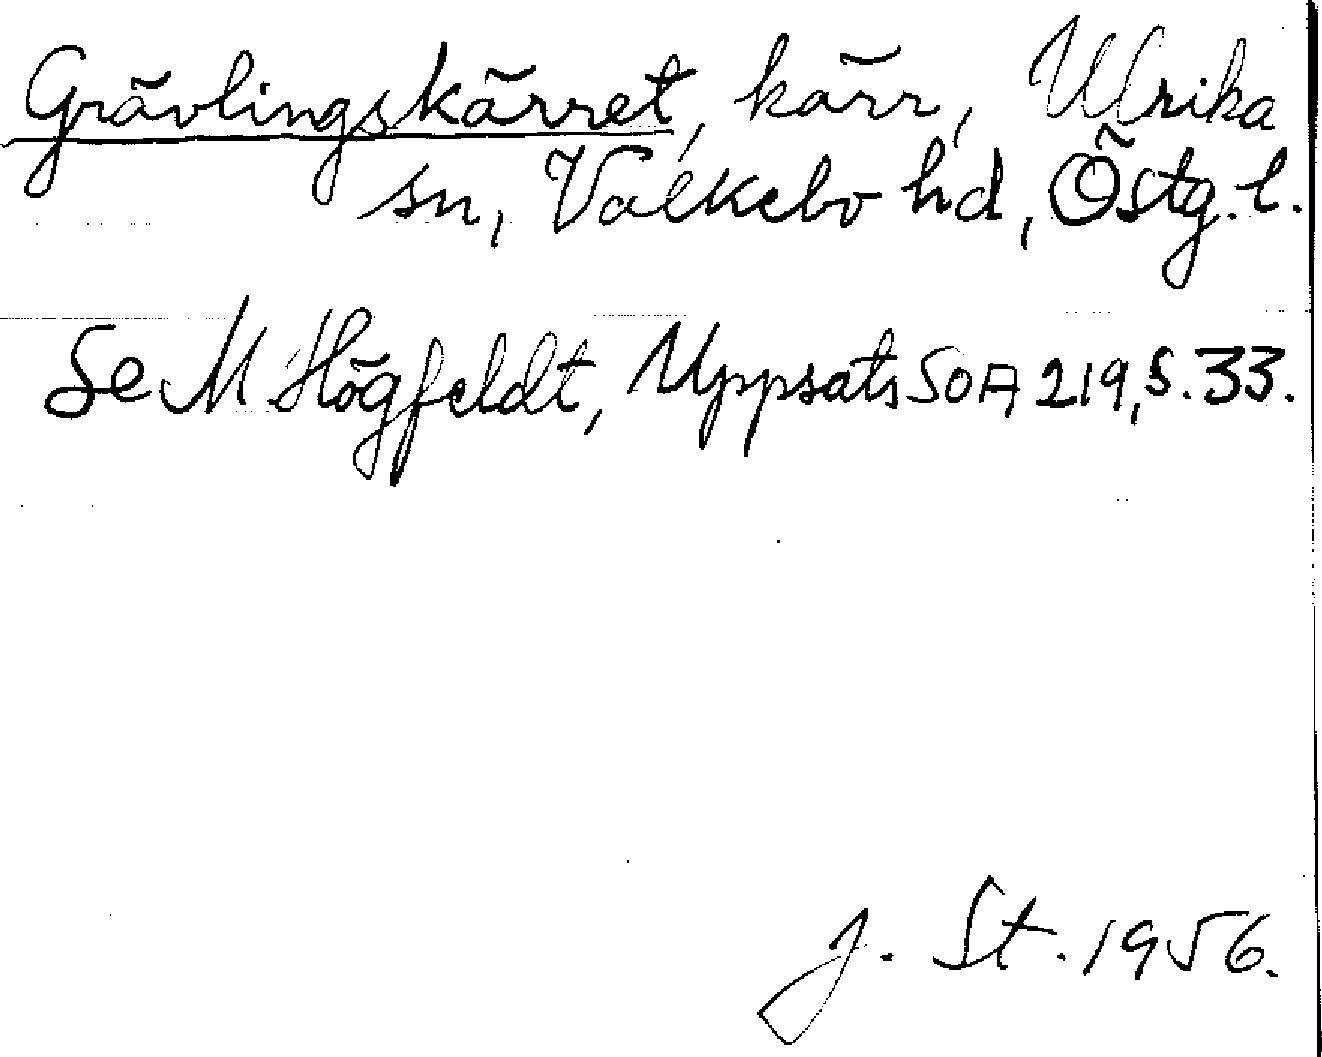 Grävlingskärret, kärr, Ulrika
sn, Valkebo hd, Östg. l.
Se M Högfeldt, Uppsats SOA 219, s. 33.
J. St. 1956.